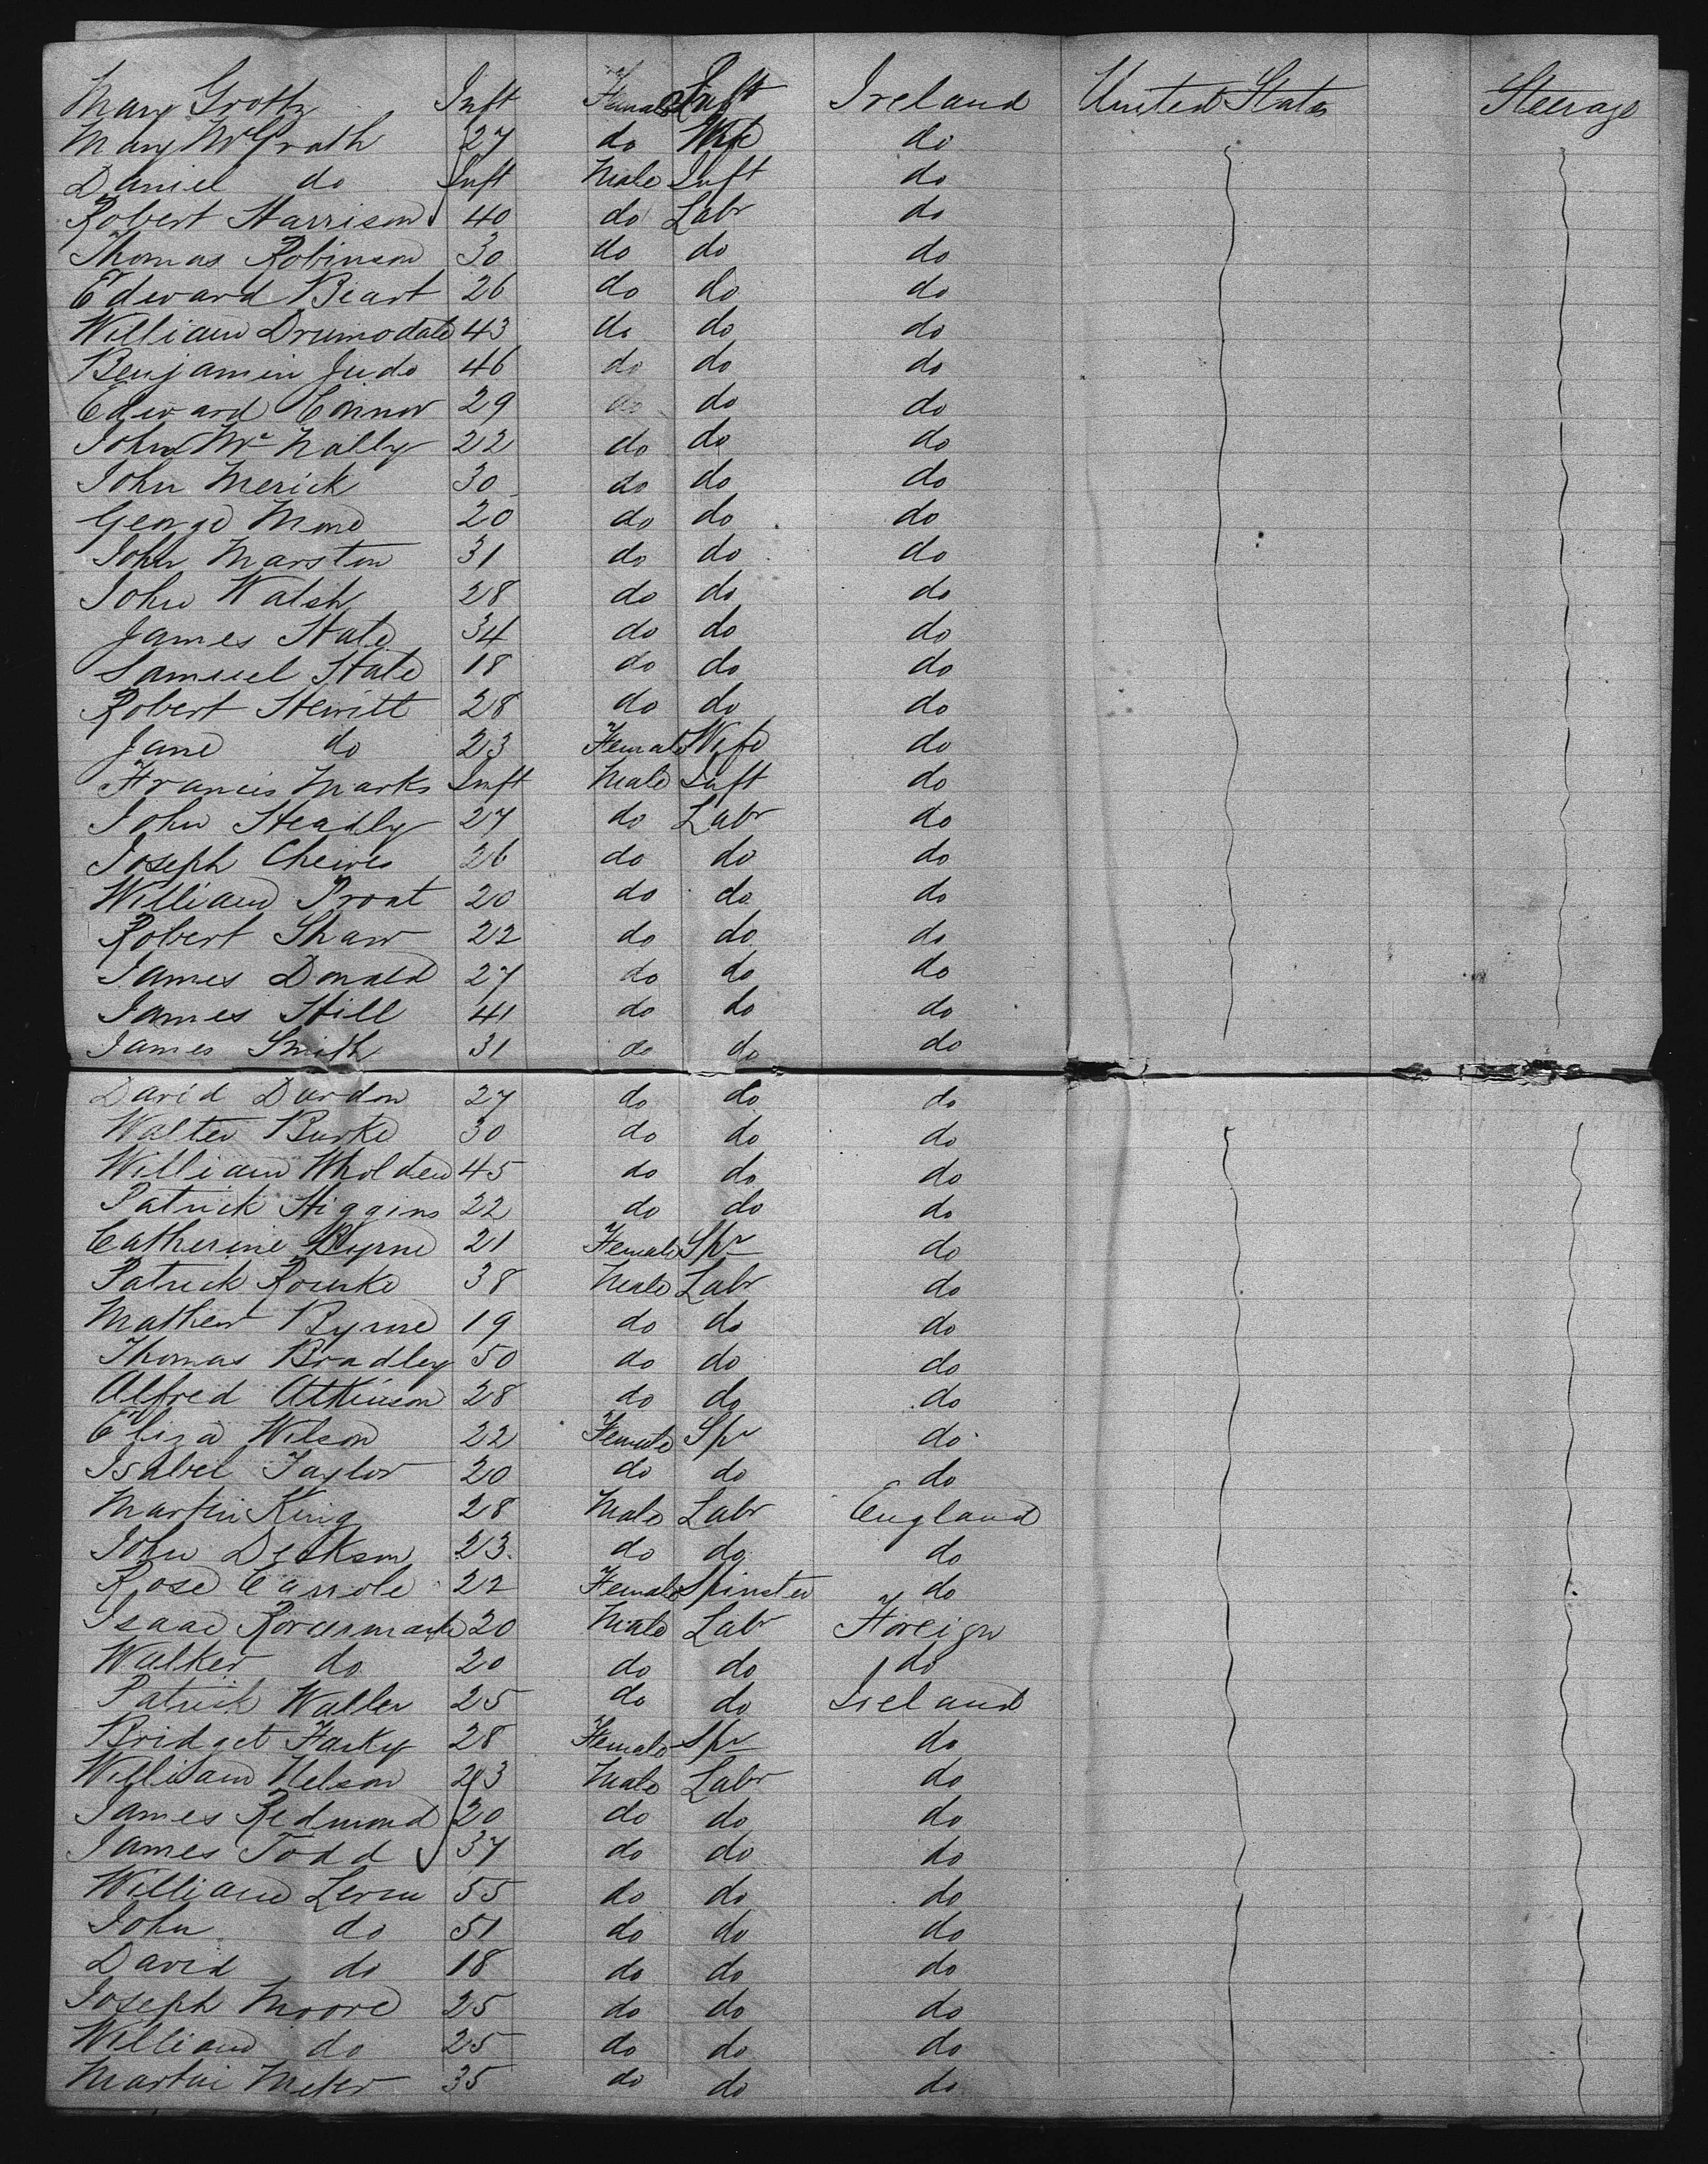 Mary Inft Female Inft Ireland United States Steerage
Mary McGrath 27 do Wife do
Daniel do Inft Male Inft do
Robert Harrison 40 do Labr do
Thomas Robinson 30 do do do
Edward Beart 26 do do do
William 43 do do do
Benjamin Judo 46 do do do
Edward Connor 29 do do do
John McNally 22 do do do
John Merick 30 do do do
George 20 do do do
John Marston 31 do do do
John Walsh 28 do do do
James Hale 34 do do do
Samuel Hale 18 do do do
Robert Hewitt 28 do do do
Jane do 23 Female Wife do
Francis Marks Inft Male Inft do
John Headly 27 do Labr do
Joseph 26 do do do
William Prout 20 do do do
Robert Shaw 22 do do do
James Donald 27 do do do
James Hill 41 do do do
James Smith 31 do do do
David Dardon 27 do do do
Walter Burke 30 do do do
William Wholden 45 do do do
Patrick Higgins 22 do do do
Catherine Byrne 21 Female Spr do
Patrick Rourke 38 Male Labr do
Mathew Byrne 19 do do do
Thomas Bradley 50 do do do
Alfred Atkinson 28 do do do
Eliza Wilson 22 Female Spr do
Isabel Taylor 20 do do do
Martin King 28 Male Labr England
John 23 do do do
Rose Carrole 22 Female Spinster do
Isaac 20 Male Labr Foreign
Walker do 20 do do do
Patrick Waller 25 do do Ireland
Bridget 28 Female Spr do
William Nelson 23 Male Labr do
James Redmond 20 do do do
James Todd 37 do do do
William 55 do do do
John do 51 do do do
David do 18 do do do
Joseph Moore 25 do do do
William do 25 do do do
Martin 35 do do do